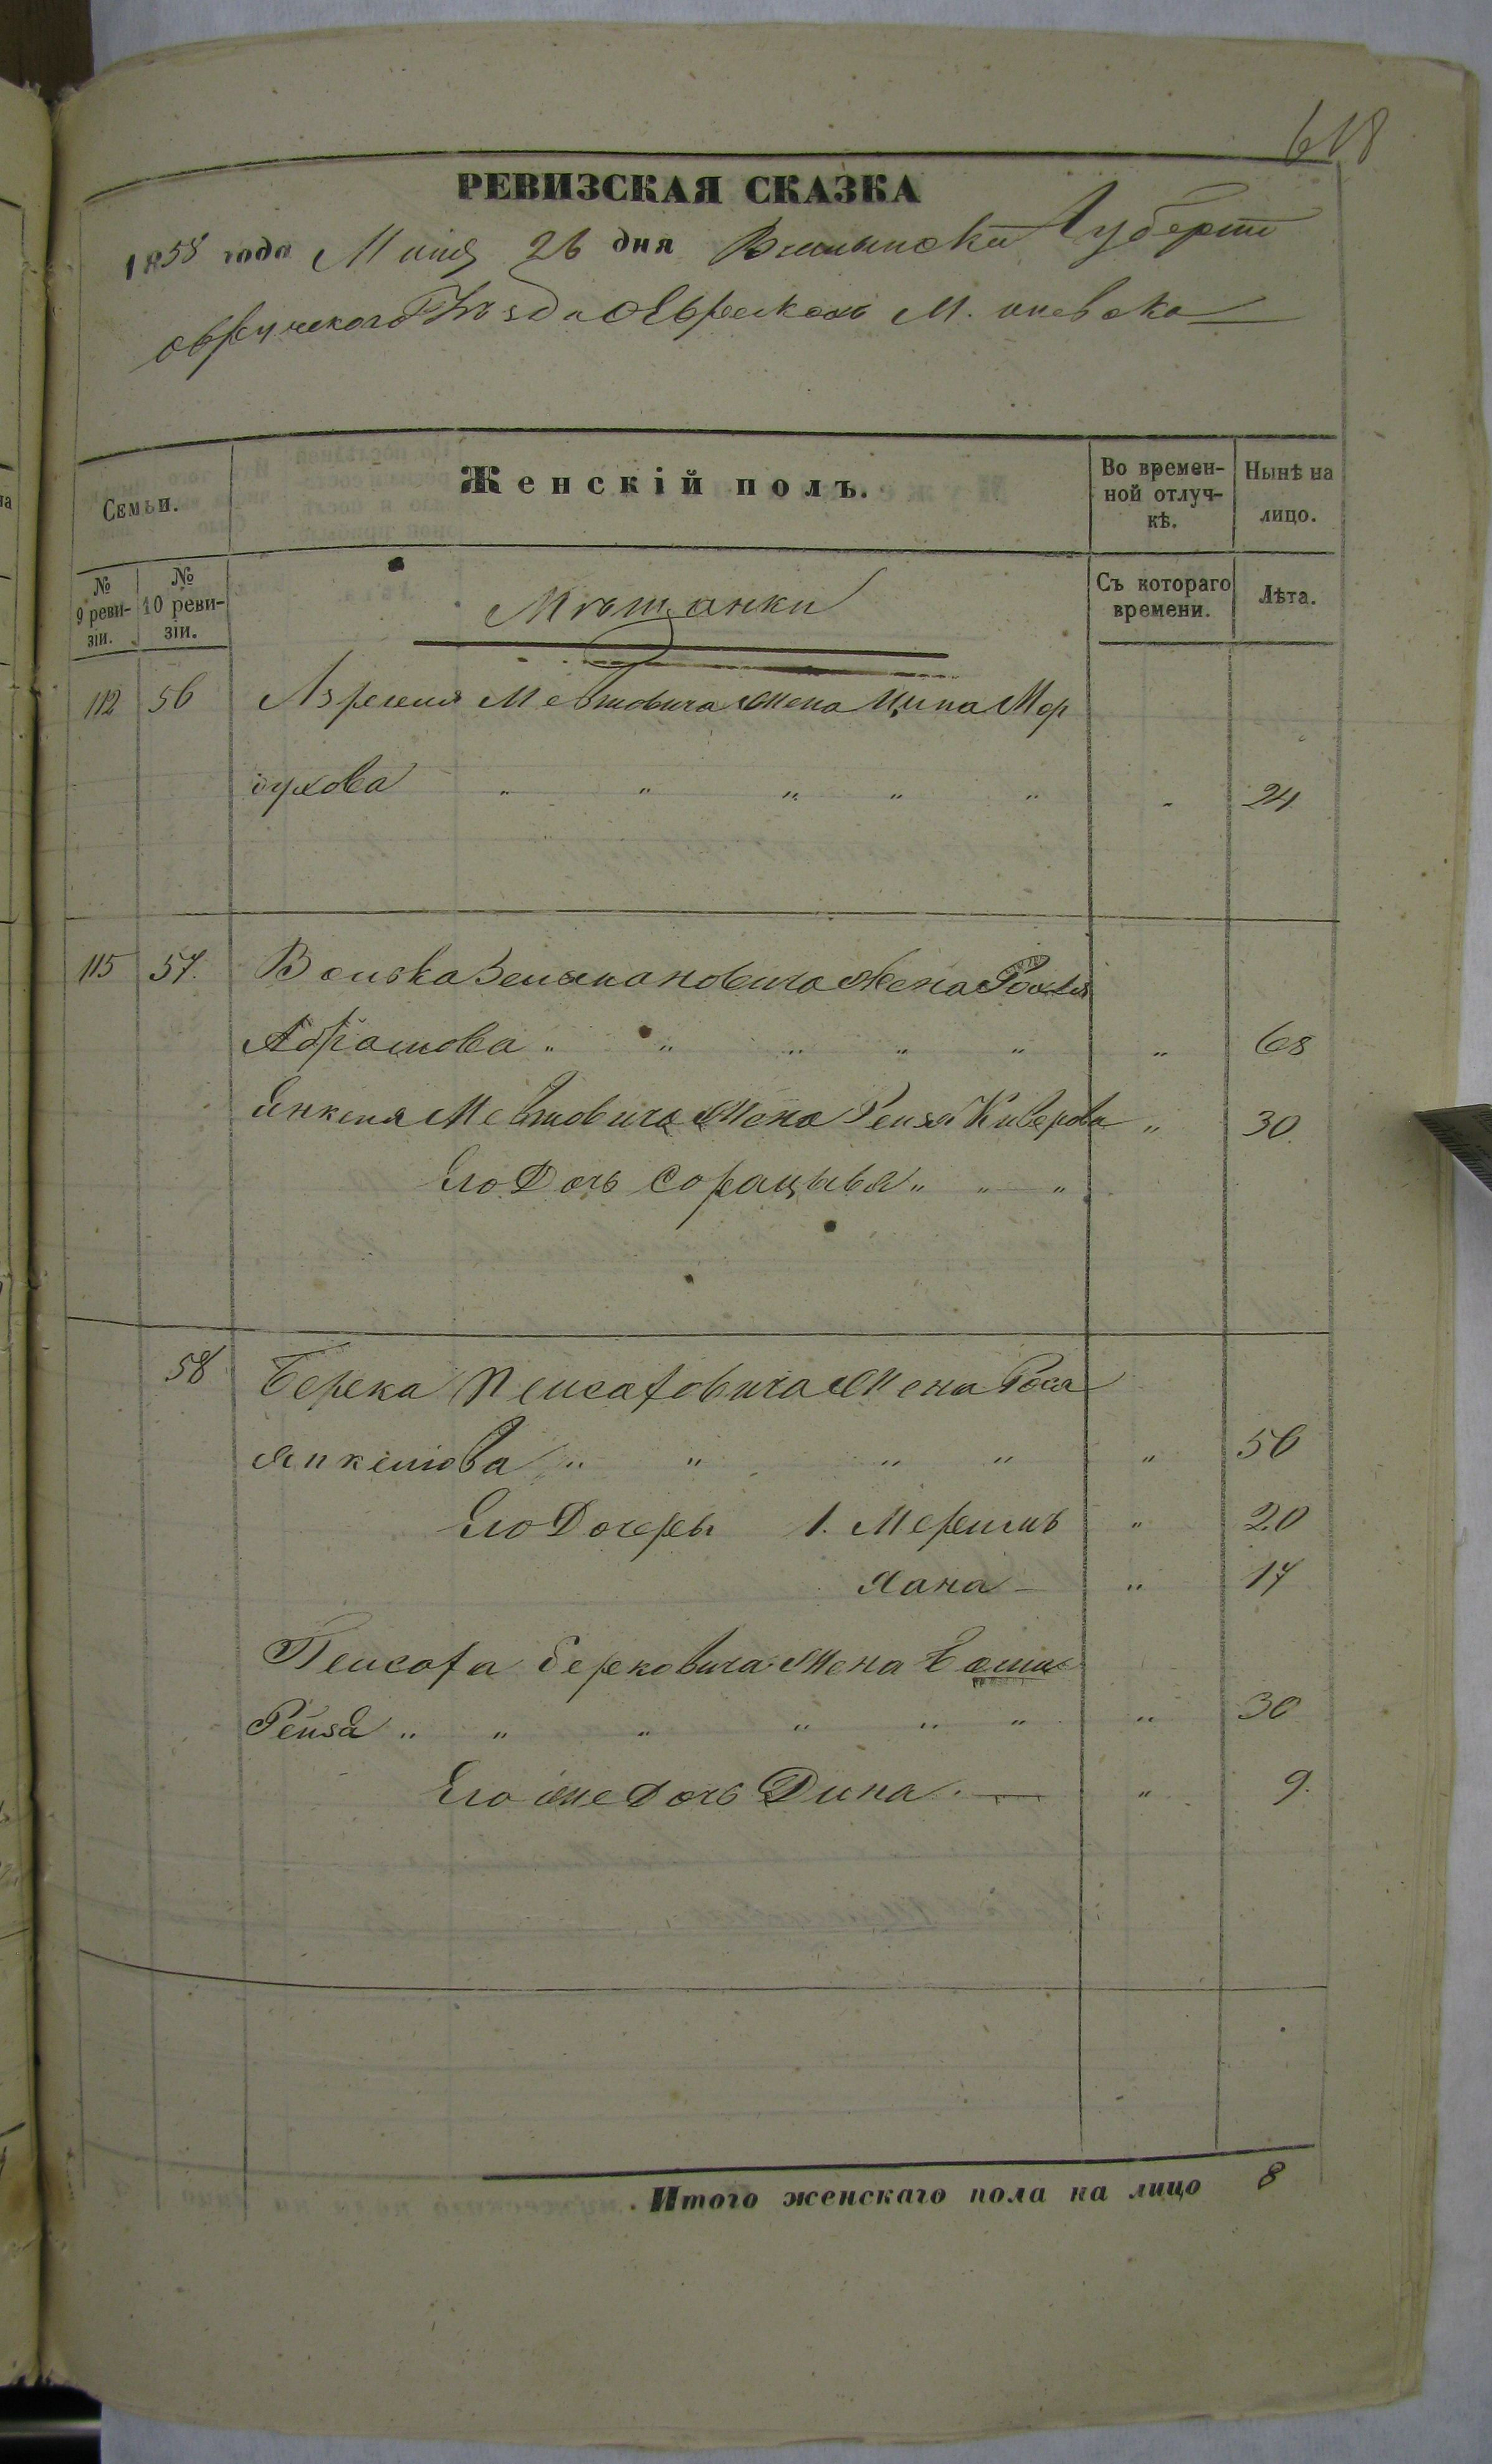 618
РЕВИЗСКАЯ СКАЗКА
1858 года Маия 26 дня Волынской Губерніи
Овручского Уѣзда о Евреяхъ М.
Семьи.
Женскій полъ.
Во времен-
ной отлуч-
кѣ.
Нынѣ на
лицо.
№
9 реви-
зіи.
№
10 реви-
зіи.
Мѣщанки
Съ котораго
времени.
Лѣта.
112 56 Азрееля Мевшовича Жена Ципа Мор
духова " " " " " - 24
115 57. Волька Зельмановича Жена
Абрамова " " " " " " 68
Янкеля Мевшовича Жена Рейзя " 30.
Его Дочь Сорацывья " " "
58 Берка Пейсаховича Жена Рося
Янкелева " " " " " 56
Его Дочеры 1. Меримъ " 20
Хана - " 17
Пейсаха Берковича Жена
Рейзя " " " " " " " 30
Его же дочь Дина . — " 9.
Итого женскаго пола на лицо 8